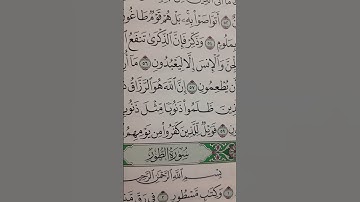 أَتَوَاصَوْا۟ بِهِۦ ۚ بَلْ هُمْ قَوْمٌ طَاغُو
مَلُومٍ ٥٤ وَذَكِّرْ فَإِنَّ ٱلذِّكْرَىٰ تَنفَعُ
جِنَّ وَٱلْإِنسَ إِلَّا لِيَعْبُدُونِ ٥٦ مَآ أُر
يُطْعِمُونِ ٥٧ إِنَّ ٱللَّهَ هُوَ ٱلرَّزَّاقُ ذُ
ذِينَ ظَلَمُوا۟ ذَنُوبًا مِّثْلَ ذَنُو
٥٩ فَوَيْلٌ لِّلَّذِينَ كَفَرُوا۟ مِن يَوْمِهِمُ
سُورَةُ الطُّورِ
بِسْمِ ٱللَّهِ ٱلرَّحْمَٰنِ ٱلرَّحِيمِ
١ وَكِتَٰبٍ مَّسْطُورٍ ٢ فِى رَقٍّ